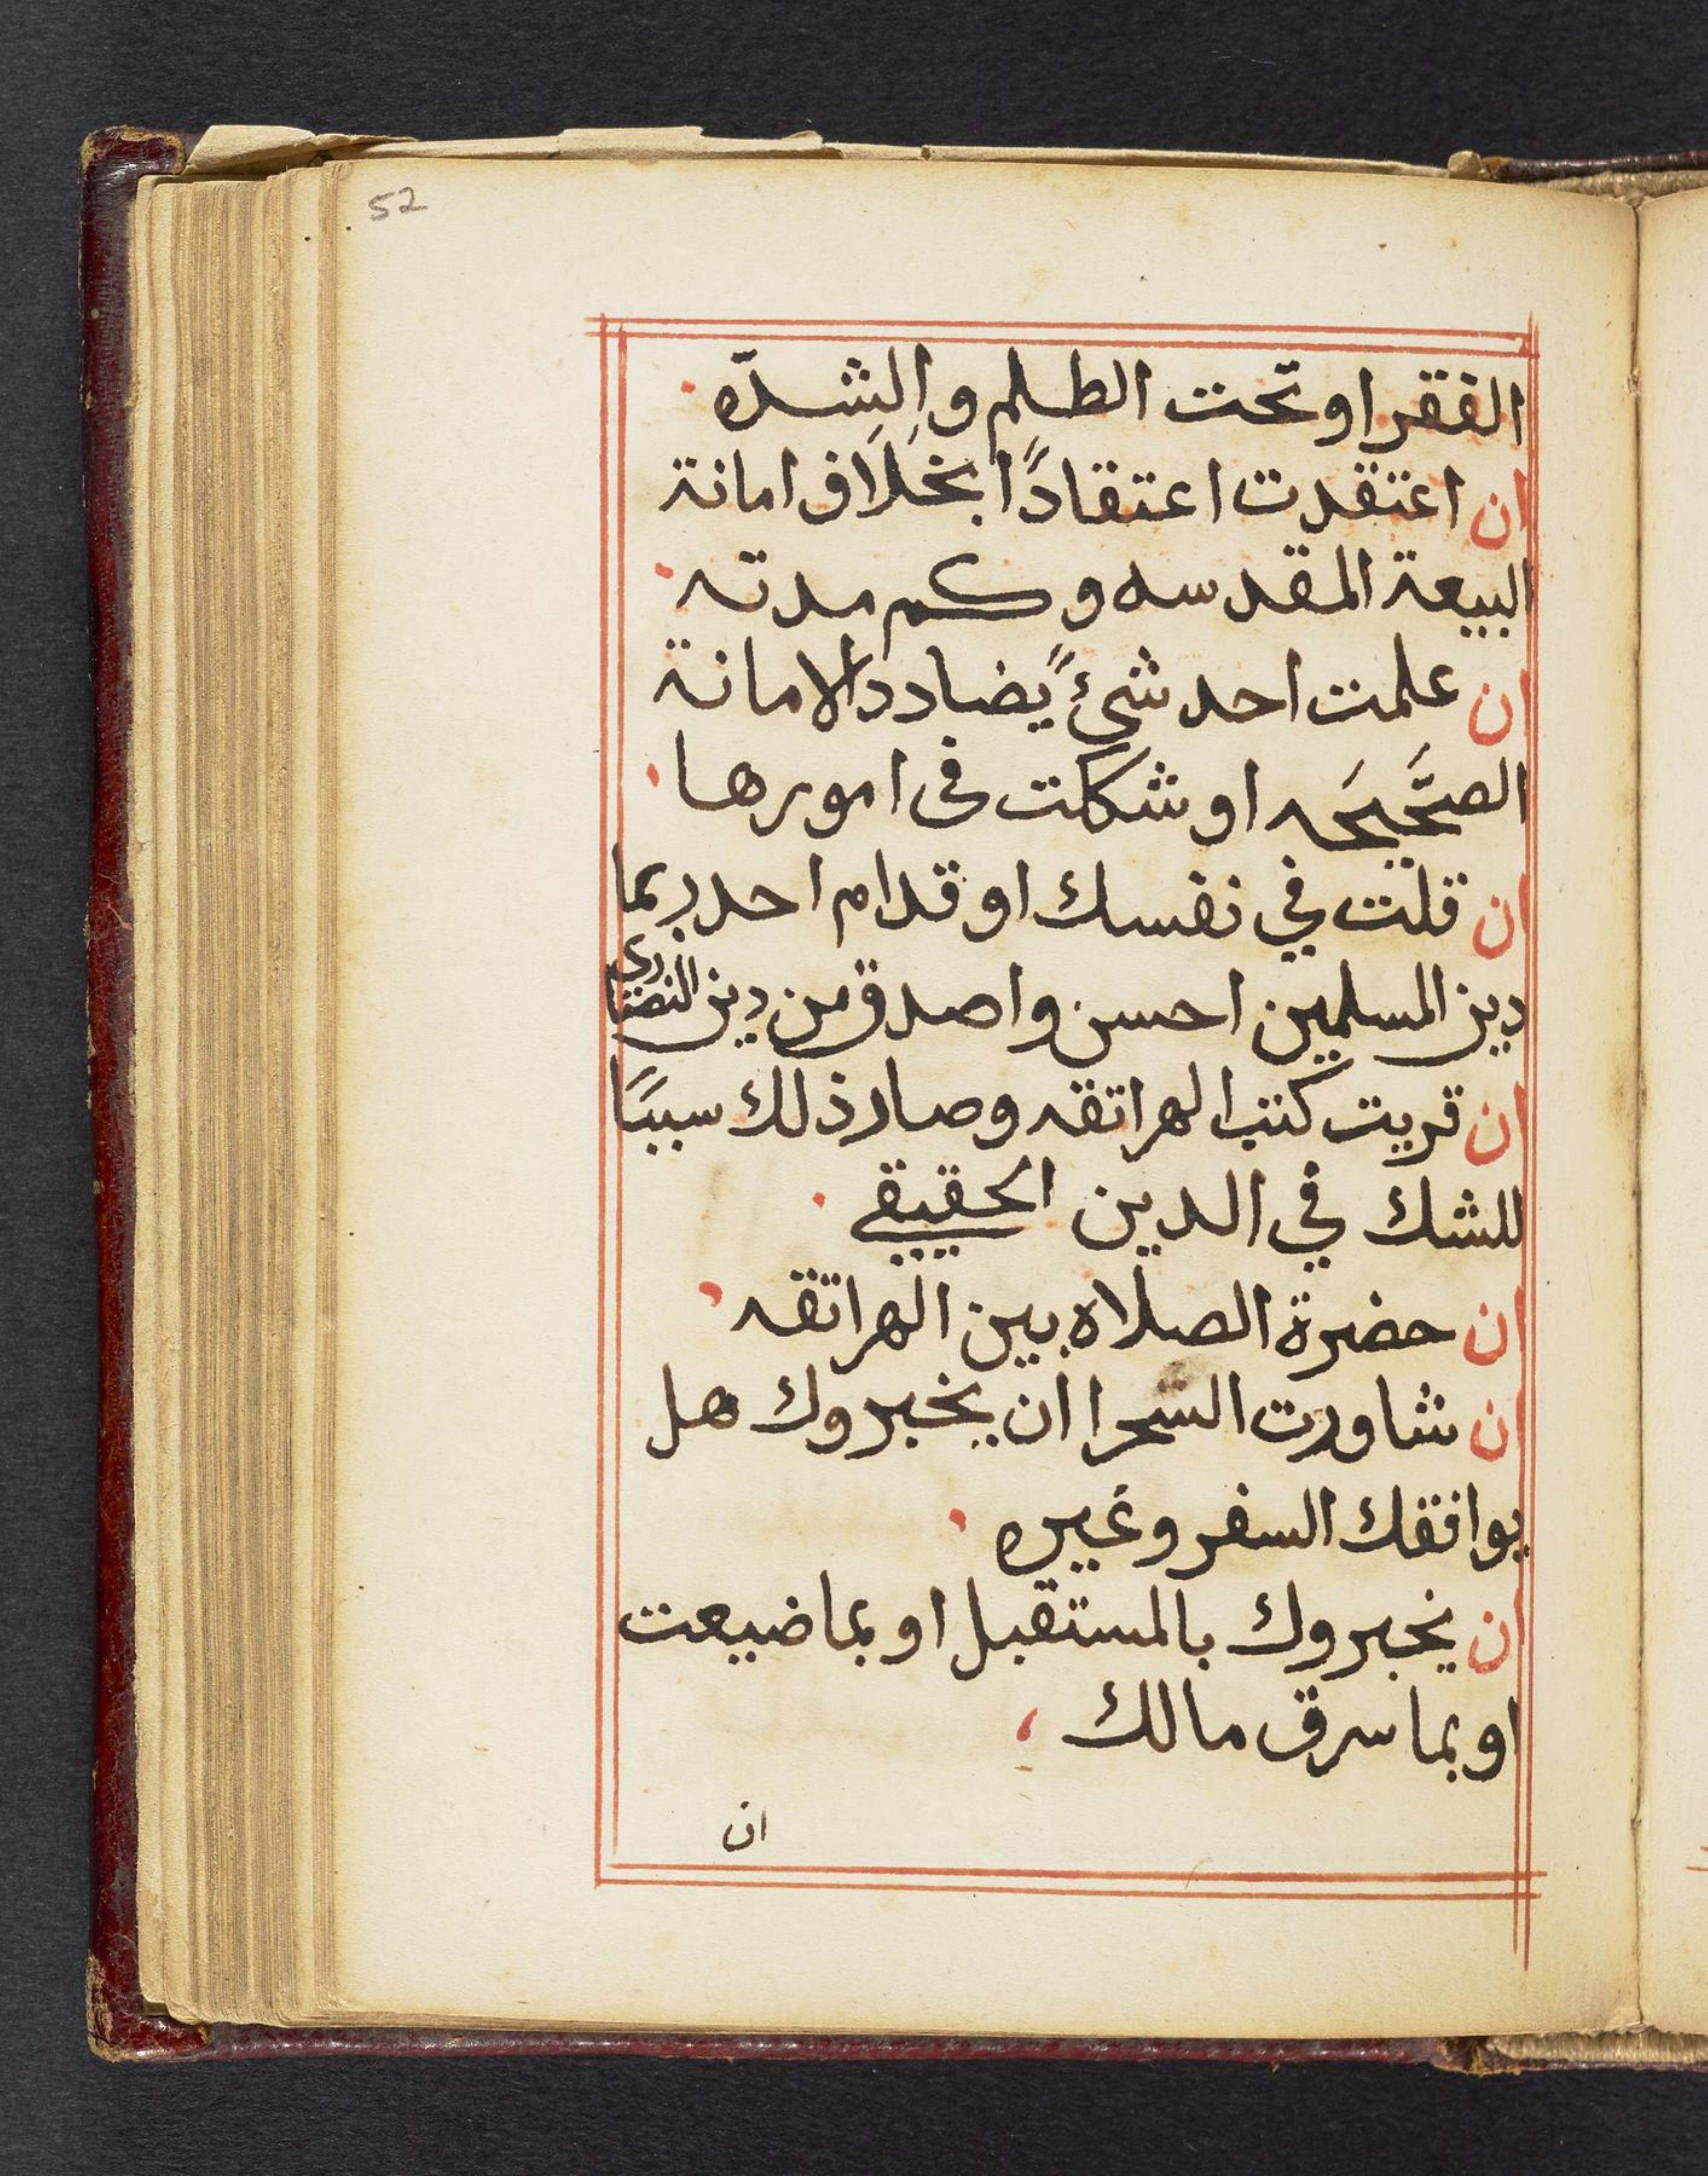 52
الفقر او تحت الظلم والشدّه
ان اعتقدت اعتقادًا بخلاف امانة
البيعة المقدسه وكم مدته
ان علمت احد شئً يضادد الامانة
الصحَّيحَه او شككت فى امورها
ان قلت في نفسك او قدام احد ربما
دين المسلمين احسن واصدق من دين النصارى
ان قريت كتب الهراتقه وصار ذلك سببًا
للشك في الدين الحقيقي
ان حضرة الصلاه بين الهراتقه
ان شاورت السحرا ان يخبروك هل
يوافقك السفر وغيره
ان يخبروك بالمستقبل او بما ضيعت
او بما سرق مالك
ان